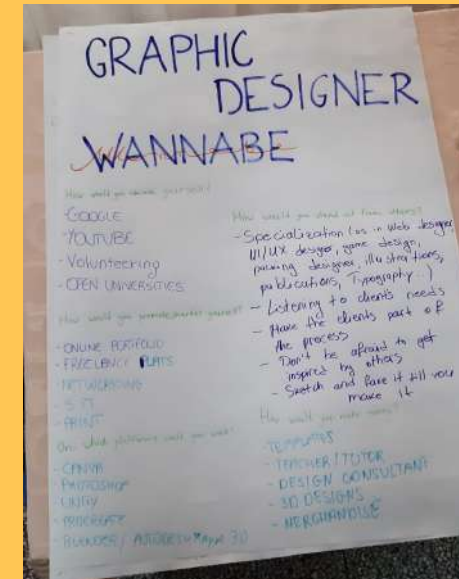 GRAPHIC
DESIGNER
WANNABE
How would you educate yourself?
-GOOGLE
-YOUTUBE
-Volunteering
-OPEN UNIVERSITIES
How would you promote/market yourself?
-ONLINE PORTFOLIO
-FREELANCE PLATS
-NETWORKING
-PRINT
On which platforms would you work?
-CANVA
-PHOTOSHOP
-UNITY
-PROCREATE
-BLENDER/ AUTODESK MAYA 3D
How would you stand out from others?
-Specialization (as in Web designer,
UI/UX designer, game design,
designer, illustrations,
publications, Typography...)
- Listening to clients needs
- Have the clients part of
the process
- Don't be afraid to get
inspired by others
- Sketch and fake it till you
make it
How would you make money?
-TEMPLATES
-TEACHER/TUTOR
-DESIGN CONSULTANT
-3D DESIGNS
-MERCHANDISE